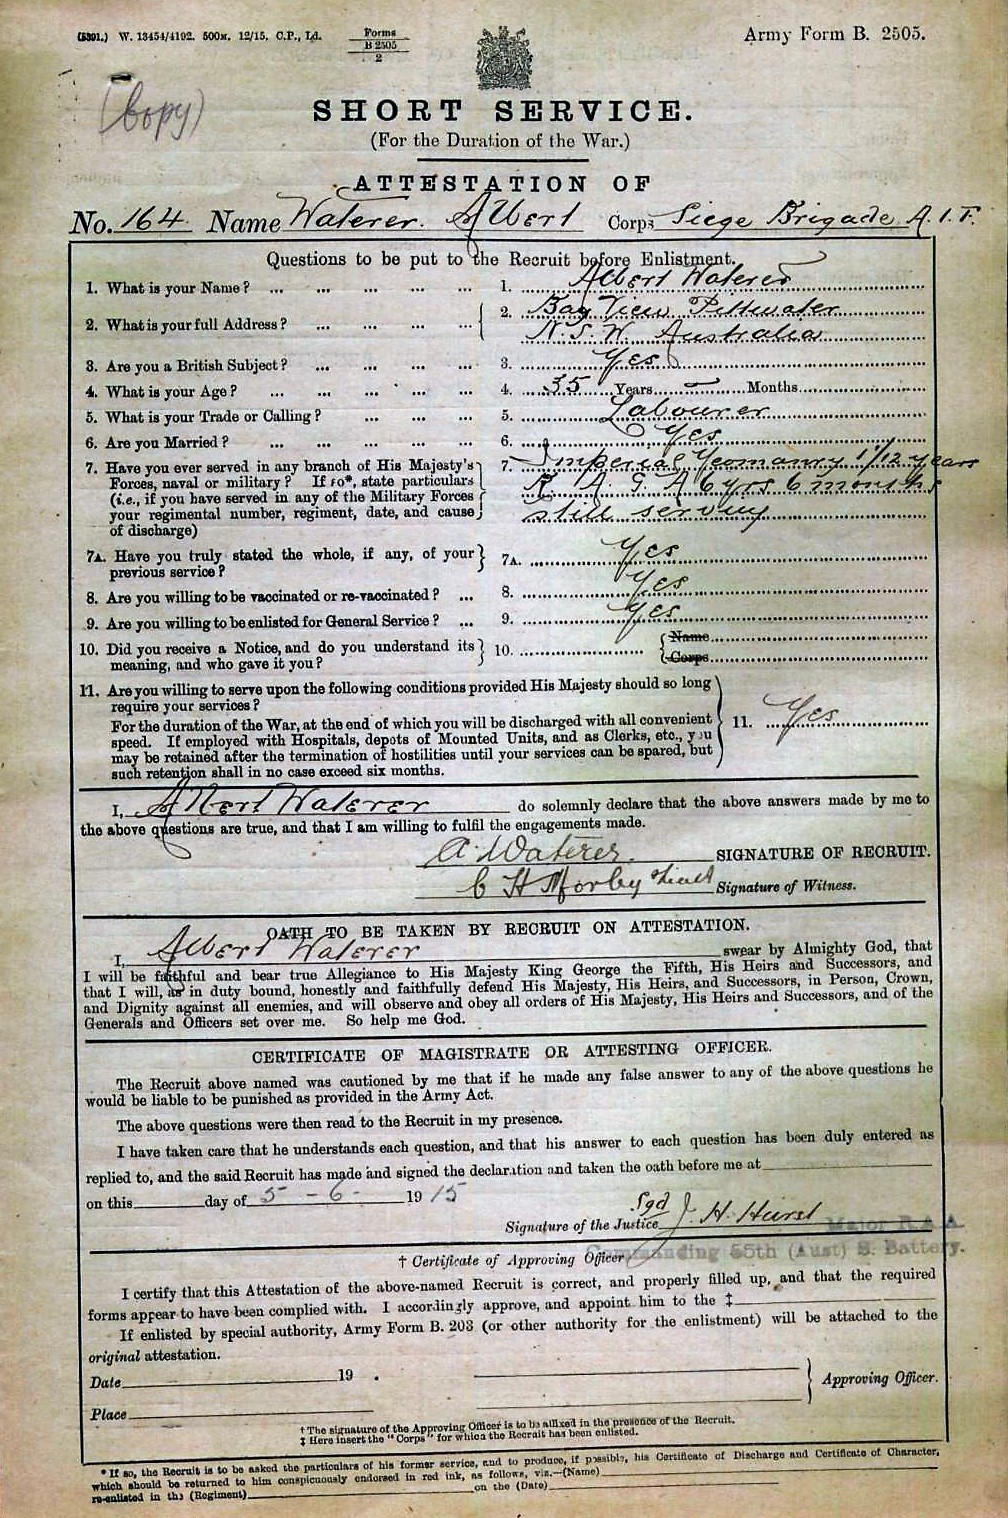 (5391.) W. 13454/4192. 500M. 12/15. C.P., Ld. Forms B 2505 2 Army Form B. 2505.
(Copy)
SHORT SERVICE.
(For the Duration of the War.)
ATTESTATION OF
No. 164 Name Waterer. Albert Corps Siege Brigade A.I.F.
Questions to be put to the Recruit before Enlistment.
1. What is your Name? ... ... ... ... 1. Albert Waterer
2. What is your full Address? ... ... ... 2. Bay View Pittwater
N.S.W. Australia
3. Are you a British Subject? ... ... ... 3. Yes
4. What is your Age? ... ... ... ... 4. 35 Years – Months
5. What is your Trade or Calling? ... ... 5. Labourer
6. Are you Married? ... ... ... ... 6. Yes
7. Have you ever served in any branch of His Majesty's 7. Imperial Yeomanry 1 1/12 years
Forces, naval or military? If so*, state particulars R.A.G.A 6 yrs 6 months
(i.e., if you have served in any of the Military Forces
your regimental number, regiment, date, and cause still serving
of discharge)
7A. Have you truly stated the whole, if any, of your 7A. Yes
previous service?
8. Are you willing to be vaccinated or re-vaccinated? ... 8. Yes
9. Are you willing to be enlisted for General Service? ... 9. Yes
10. Did you receive a Notice, and do you understand its 10. Name
meaning, and who gave it you? Corps
11. Are you willing to serve upon the following conditions provided His Majesty should so long
require your services?
For the duration of the War, at the end of which you will be discharged with all convenient 11. Yes
speed. If employed with Hospitals, depots of Mounted Units, and as Clerks, etc., you
may be retained after the termination of hostilities until your services can be spared, but
such retention shall in no case exceed six months.
I, Albert Waterer do solemnly declare that the above answers made by me to
the above questions are true, and that I am willing to fulfil the engagements made.
A. Waterer. SIGNATURE OF RECRUIT.
C H Morby Signature of Witness.
OATH TO BE TAKEN BY RECRUIT ON ATTESTATION.
I, Albert Waterer swear by Almighty God, that
I will be faithful and bear true Allegiance to His Majesty King George the Fifth, His Heirs and Successors, and
that I will, as in duty bound, honestly and faithfully defend His Majesty, His Heirs, and Successors, in Person, Crown,
and Dignity against all enemies, and will observe and obey all orders of His Majesty, His Heirs and Successors, and of the
Generals and Officers set over me. So help me God.
CERTIFICATE OF MAGISTRATE OR ATTESTING OFFICER.
The Recruit above named was cautioned by me that if he made any false answer to any of the above questions he
would be liable to be punished as provided in the Army Act.
The above questions were then read to the Recruit in my presence.
I have taken care that he understands each question, and that his answer to each question has been duly entered as
replied to, and the said Recruit has made and signed the declaration and taken the oath before me at
on this day of 5 - 6 - 1915
Sgd
Signature of the Justice J. H. Hurst Major R.A.A.
Commanding 55th (Aust) S. Battery.
† Certificate of Approving Officer
I certify that this Attestation of the above-named Recruit is correct, and properly filled up, and that the required
forms appear to have been complied with. I accordingly approve, and appoint him to the ‡
If enlisted by special authority, Army Form B. 203 (or other authority for the enlistment) will be attached to the
original attestation.
Date 19 .
Approving Officer.
Place
† The signature of the Approving Officer is to be affixed in the presence of the Recruit.
‡ Here insert the "Corps" for which the Recruit has been enlisted.
* If so, the Recruit is to be asked the particulars of his former service, and to produce, if possible, his Certificate of Discharge and Certificate of Character,
which should be returned to him conspicuously endorsed in red ink, as follows, viz.—(Name)
re-enlisted in the (Regiment) on the (Date)